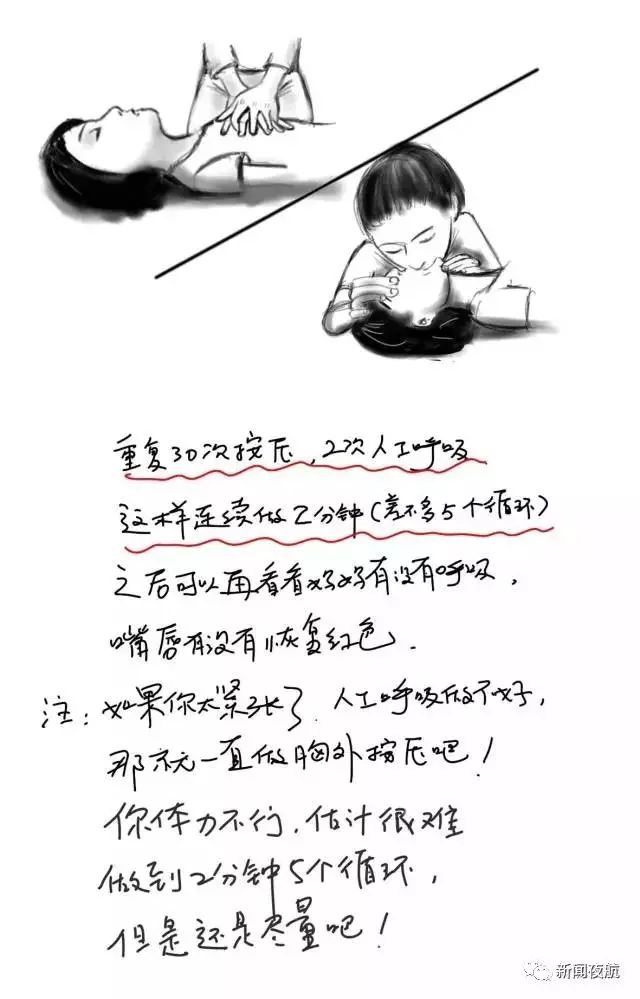 重复30次按压，2次人工呼吸
这样连续做2分钟(差不多5个循环)
之后可以再看看妈妈有没有呼吸，
嘴唇有没有恢复红色.
注：如果你太紧张了.人工呼吸做不好，
那就一直做胸外按压吧！
你体力不行.估计很难
做到2分钟5个循环，
但是还是尽量吧！
新闻夜航